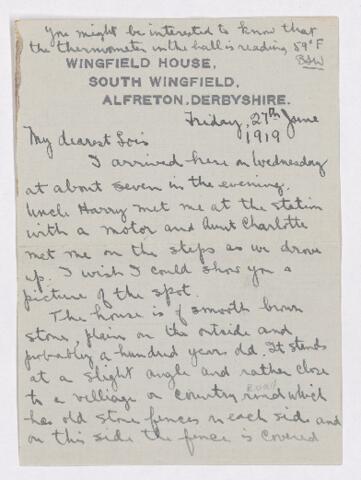 You might be interested to know that
the thermometer in the hall is reading 59° F
BSW
WINGFIELD HOUSE,
SOUTH WINGFIELD,
ALFRETON. DERBYSHIRE.
Friday, 27th June
1919
My dearest Lois
I arrived here on Wednesday
at about seven in the evening.
Uncle Harry met me at the station
with a motor and Aunt Charlotte
met me on the steps as we drove
up. I wish I could show you a
picture of the spot.
The house is of smooth brown
stone, plain on the outside and
probably a hundred years old. It stands
at a slight angle and rather close
to a villiage or country road which
has old stone fences on each side and
on this side the fence is covered